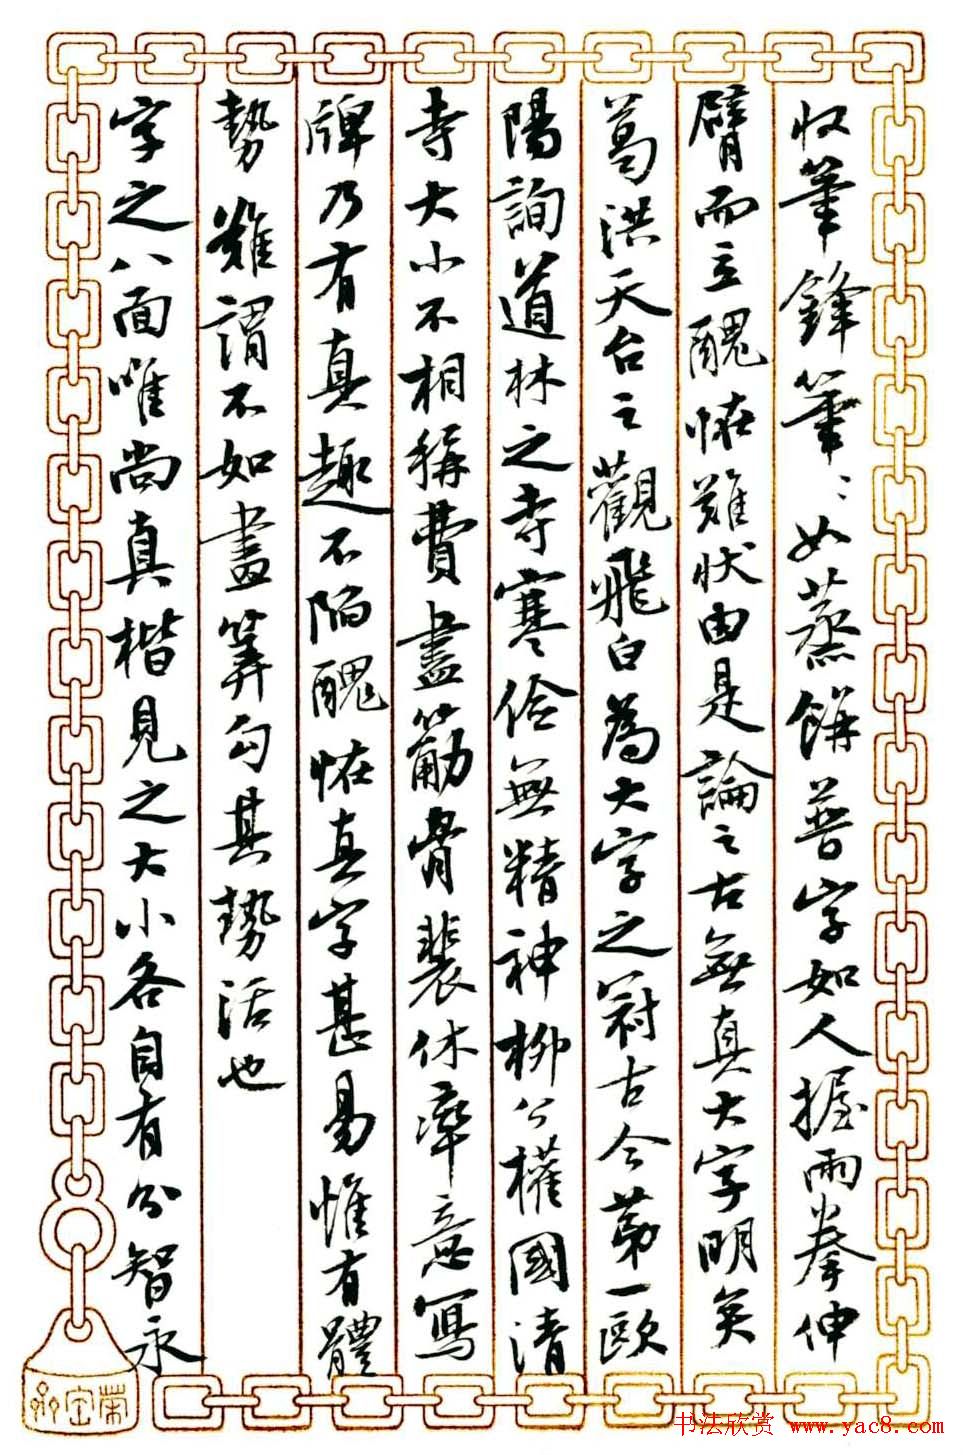 收筆鋒筆〻如蒸餅普字如人握兩拳伸
臂而立醜怪難狀由是論之古無真大字明矣
葛洪天台之觀飛白為大字之冠古今第一歐
陽詢道林之寺寒儉無精神柳公權國清
寺大小不相稱費盡筋骨裴休率意寫
牌乃有真趣不陷醜怪真字甚易惟有體
勢難謂不如畫算勾其勢活也
字之八面唯尚真楷見之大小各自有分智永
榮宝斋
书法欣赏 www.yac8.com